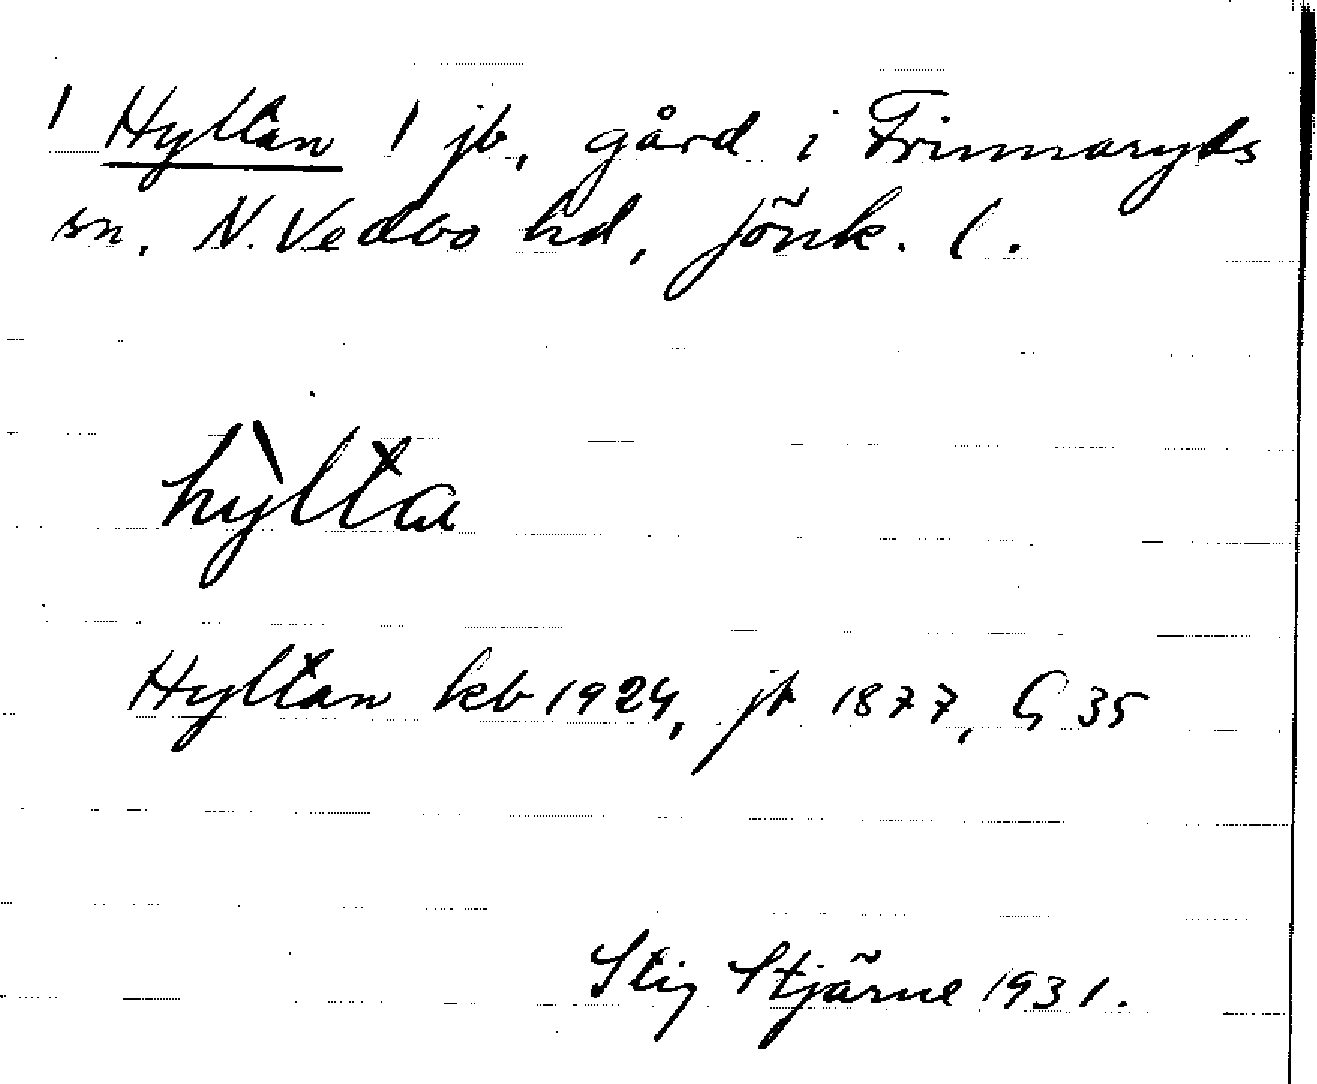 1 Hyltan 1 jb, gård i Frinnaryds
sn. N. Vedbo hd, Jönk. l.
hỳlta
Hyltan kb 1924, jb 1877, G 35
Stig Stjärne 1931.